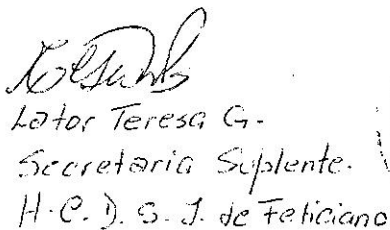 Lator Teresa G.
Secretaria Suplente.
H.C.D. S. J. de Feliciano